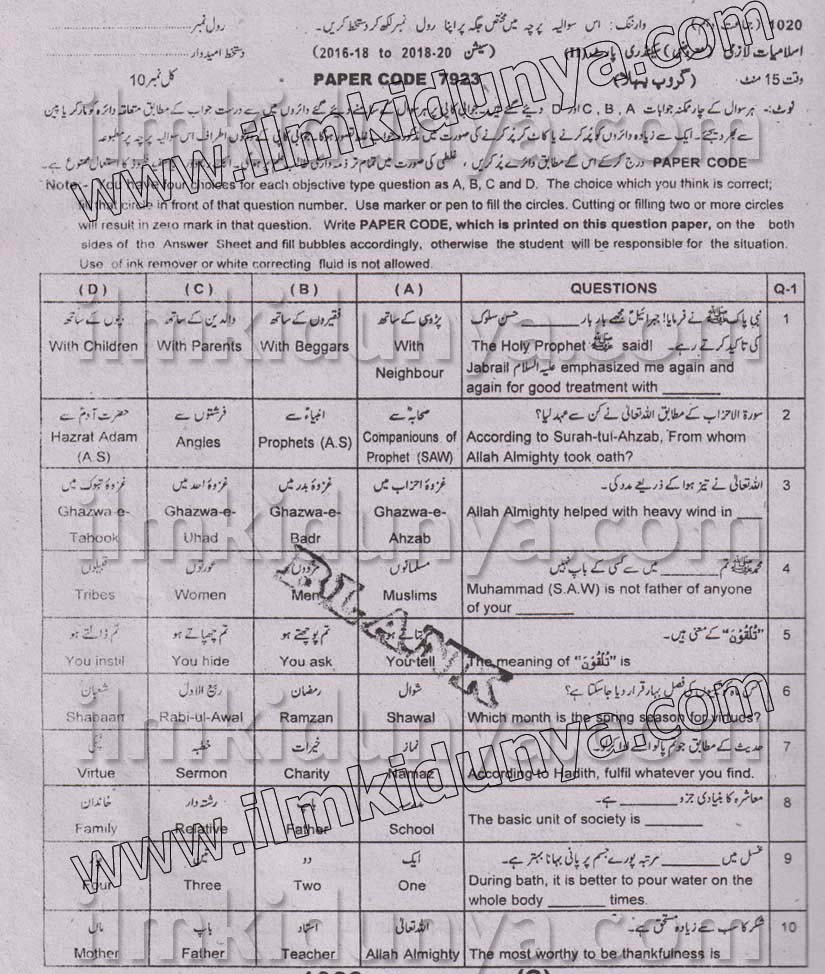 1020 وارننگ: اس سوالیہ پرچہ میں مختص جگہ پر اپنا رول نمبر لکھ کر دستخط کریں۔ رول نمبر
اسلامیات لازمی (سیشن 2018-20 to 2016-18) دستخط امیدوار
وقت 15 منٹ (گروپ پہلا) PAPER CODE 7923 کل نمبر 10
نوٹ:- ہر سوال کے چار ممکنہ جوابات A ، B ، C اور D دیئے گئے ہیں۔
PAPER CODE درج کر کے اس کے مطابق دائرے پُر کریں،
Note:- You have four choices for each objective type question as A, B, C and D. The choice which you think is correct;
fill that circle in front of that question number. Use marker or pen to fill the circles. Cutting or filling two or more circles
will result in zero mark in that question. Write PAPER CODE, which is printed on this question paper, on the both
sides of the Answer Sheet and fill bubbles accordingly, otherwise the student will be responsible for the situation.
Use of ink remover or white correcting fluid is not allowed.
( D ) ( C ) ( B ) ( A ) QUESTIONS Q-1
بچوں کے ساتھ والدین کے ساتھ فقیروں کے ساتھ پڑوسی کے ساتھ نبی پاک ﷺ نے فرمایا! جبرائیل مجھے بار بار ______ حسن سلوک 1
With Children With Parents With Beggars With Neighbour
کی تاکید کرتے رہے۔ The Holy Prophet ﷺ said!
Jabrail علیہ السلام emphasized me again and
again for good treatment with ______
حضرت آدم سے فرشتوں سے انبیاء سے صحابہ سے سورۃ الاحزاب کے مطابق اللہ تعالیٰ نے کن سے عہد لیا؟ 2
Hazrat Adam (A.S) Angles Prophets (A.S) Companiouns of Prophet (SAW)
According to Surah-tul-Ahzab, From whom
Allah Almighty took oath?
غزوۂ تبوک میں غزوۂ احد میں غزوۂ بدر میں غزوۂ احزاب میں اللہ تعالیٰ نے تیز ہوا کے ذریعے مدد کی۔ 3
Ghazwa-e-Tabook Ghazwa-e-Uhad Ghazwa-e-Badr Ghazwa-e-Ahzab
Allah Almighty helped with heavy wind in ___
قبیلوں عورتوں مردوں مسلمانوں محمد ﷺ تم ______ میں سے کسی کے باپ نہیں 4
Tribes Women Men Muslims
Muhammad (S.A.W) is not father of anyone
of your ______
تم ڈالتے ہو تم چھپاتے ہو تم پوچھتے ہو بتاتے ہو "تُلْقُوْنَ" کے معنی ہیں۔ 5
You instil You hide You ask You tell The meaning of "تُلْقُوْنَ" is
شعبان ربیع الاول رمضان شوال فصل بہار قرار دیا جا سکتا ہے؟ 6
Shabaan Rabi-ul-Awal Ramzan Shawal Which month is the spring season for virtues?
نیکی خطبہ خیرات نماز حدیث کے مطابق جو تم پاؤ اسے ادا کرو۔ 7
Virtue Sermon Charity Namaz According to Hadith, fulfil whatever you find.
خاندان رشتہ دار باپ مدرسہ معاشرہ کا بنیادی جزو ______ ہے۔ 8
Family Relative Father School The basic unit of society is ______
تین دو ایک غسل میں ______ مرتبہ پورے جسم پر پانی بہانا بہتر ہے۔ 9
Four Three Two One During bath, it is better to pour water on the
whole body ______ times.
ماں باپ استاد اللہ تعالیٰ شکر کا سب سے زیادہ مستحق ہے۔ 10
Mother Father Teacher Allah Almighty The most worthy to be thankfulness is
BLANK
www.ilmkidunya.com
www.ilmkidunya.com
ilmkidunya.com
ilmkidunya.com
ilmkidunya.com
ilmkidunya.com
ilmkidunya.com